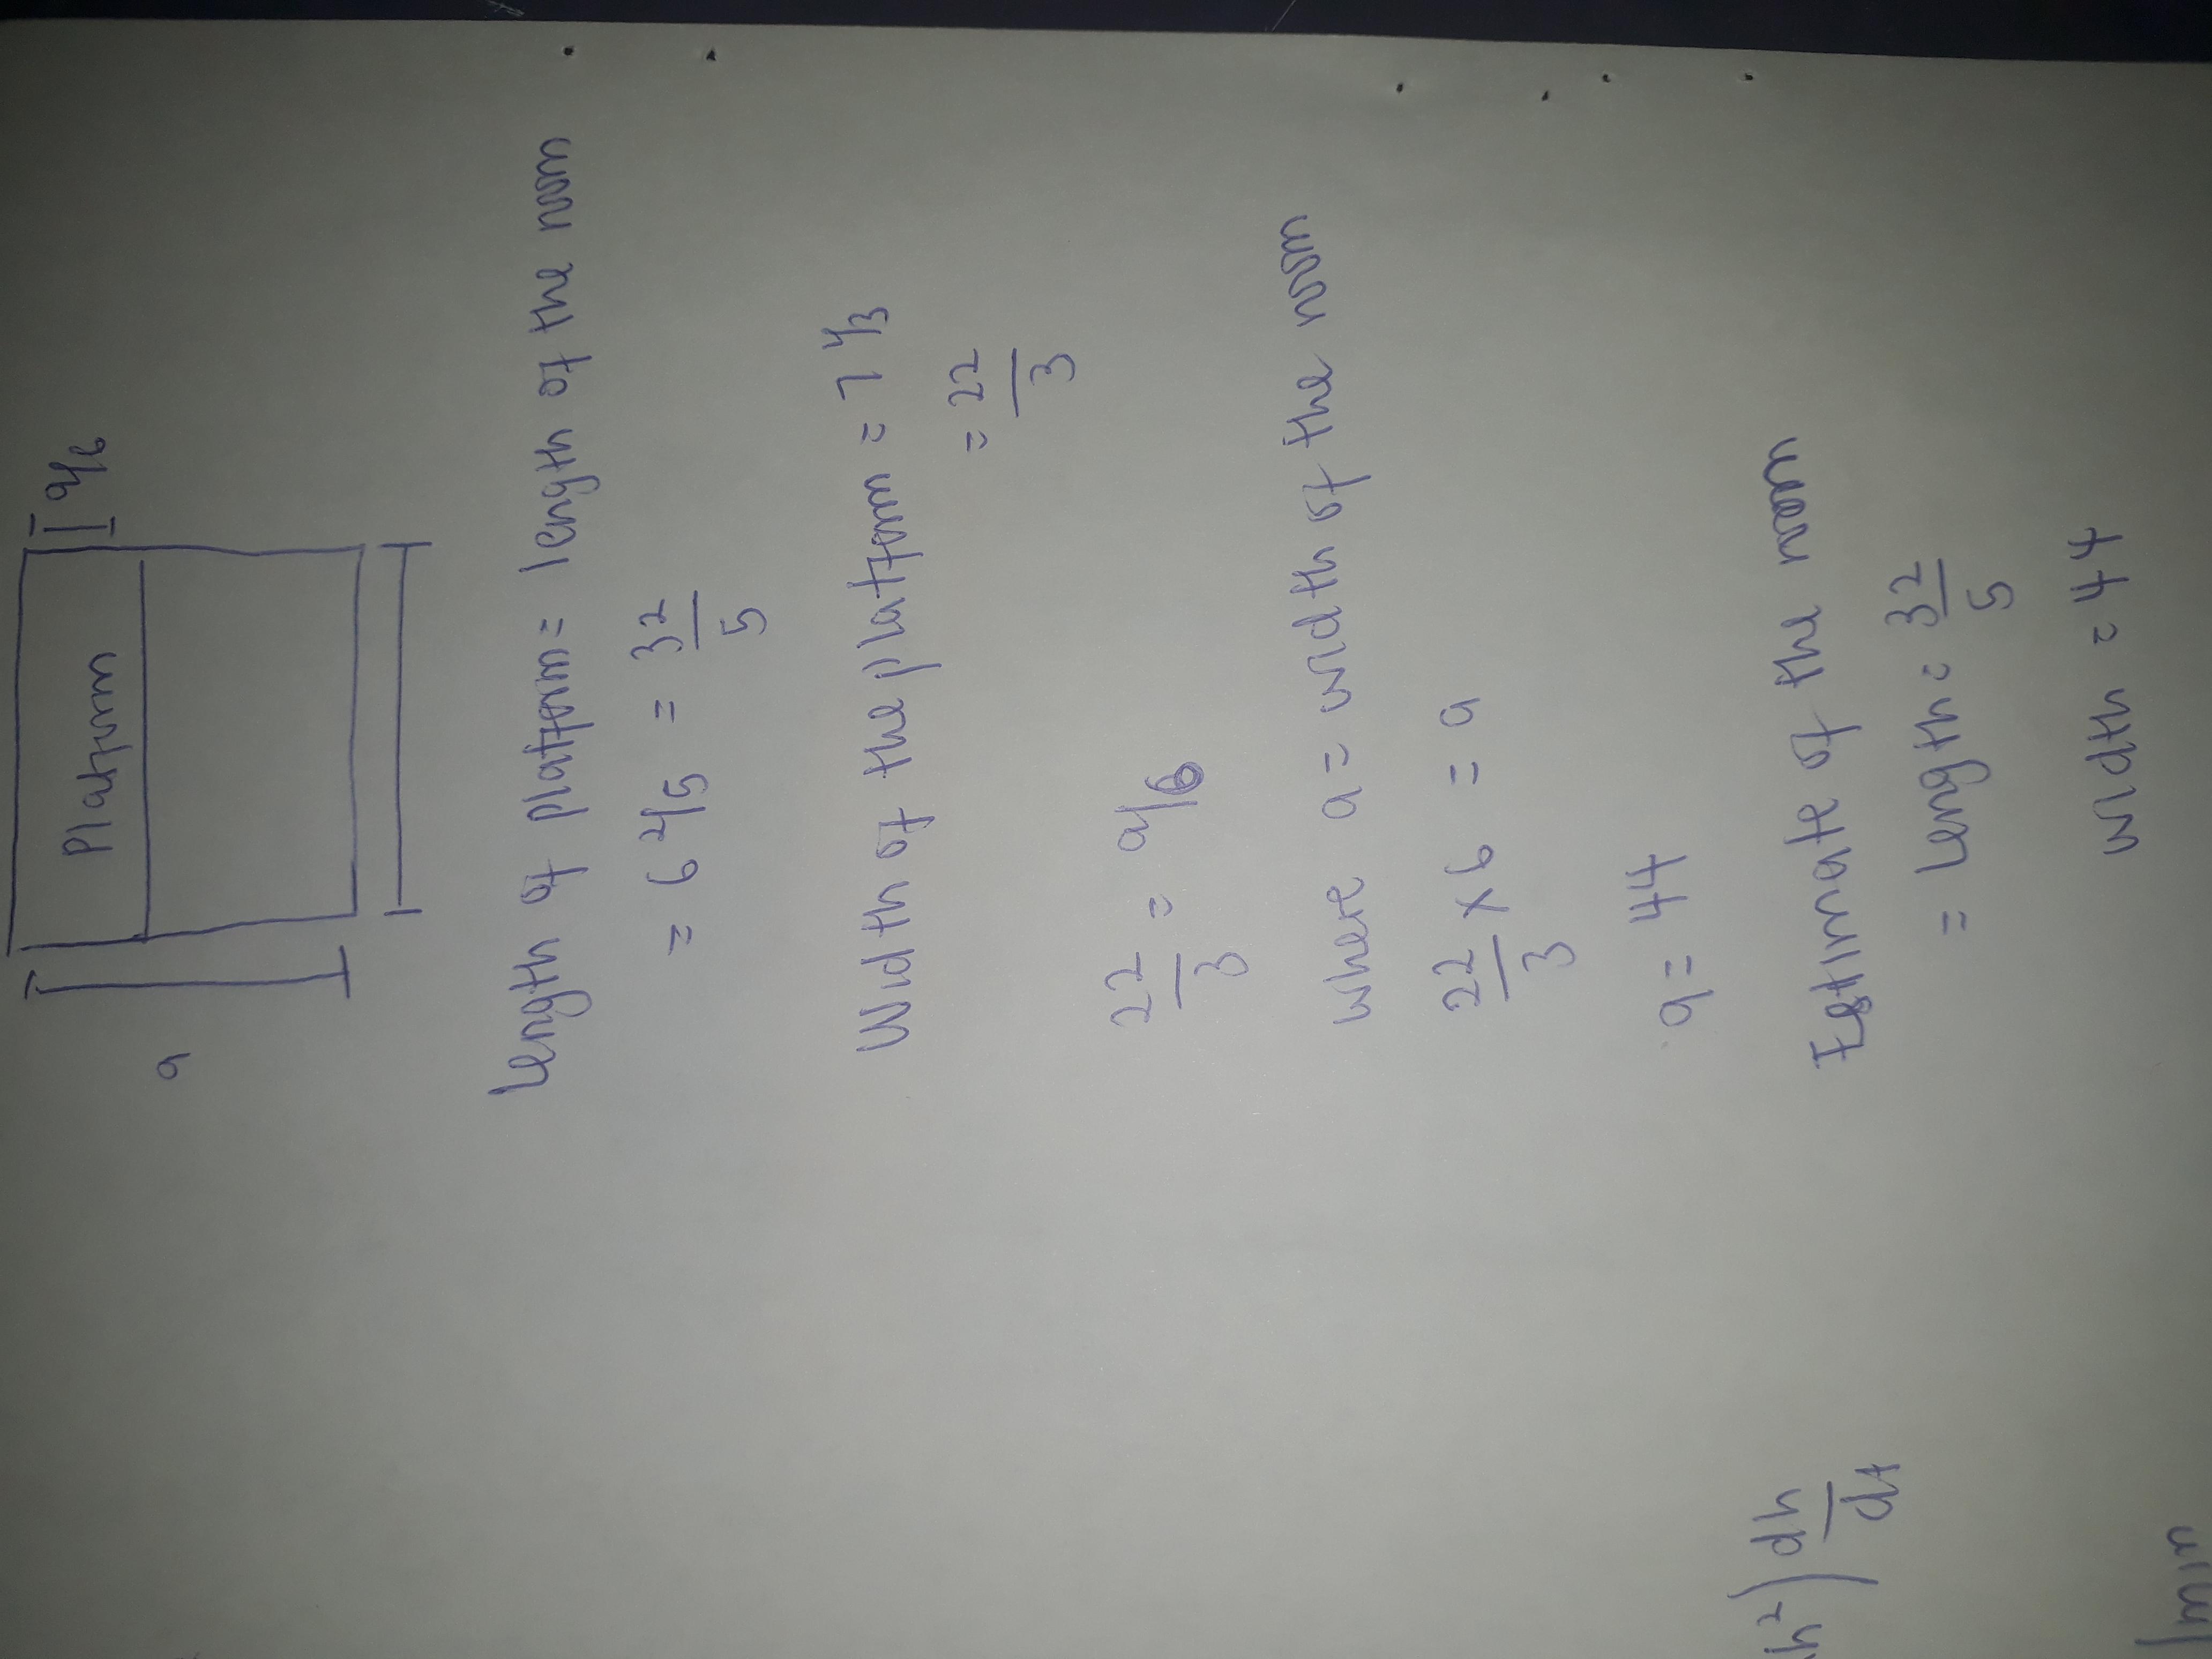 a/6
Platform
a
Length of platform = length of the room
= 6 2/5 = 32/5
Width of the platform = 7 1/3
= 22/3
22/3 = a/6
where a = width of the room
22/3 x 6 = a
a = 44
Estimate of the room
= Length = 32/5
Width = 44
h²) dh/dt